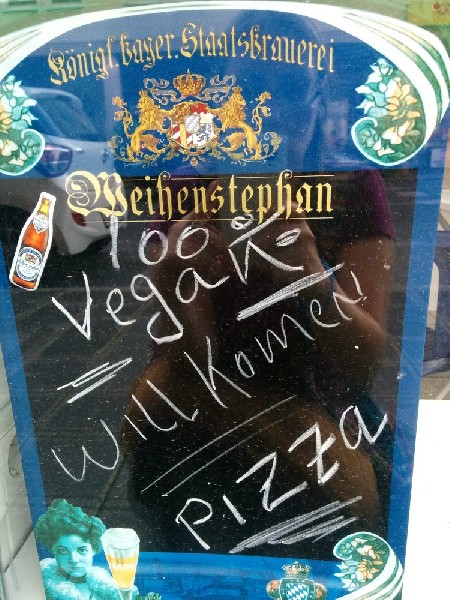 Königl. bayer. Staatsbrauerei
Weihenstephan
100 %
Vegan
Willkomen!
Pizza